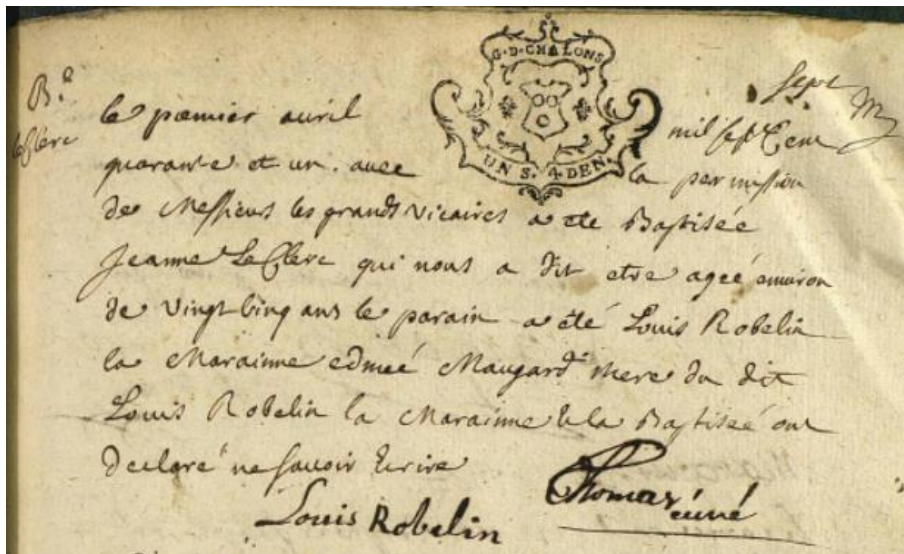 G·D·CHALONS
UN S. 4 DEN.
Sept
B.e
le Clerc
le premier avril mil sept Cent
quarante et un. avec la permission
de Messieurs les grands vicaires a eté Baptisée
Jeanne Le Clerc qui nous a dit etre ageé environ
de vingt Cinq ans le parain a été Louis Robelin
la Marainne edmeé Maugard mere du dit
Louis Robelin la Marainne & la Baptiseé ont
declaré ne savoir Ecrire
Louis Robelin
Thomas
curé